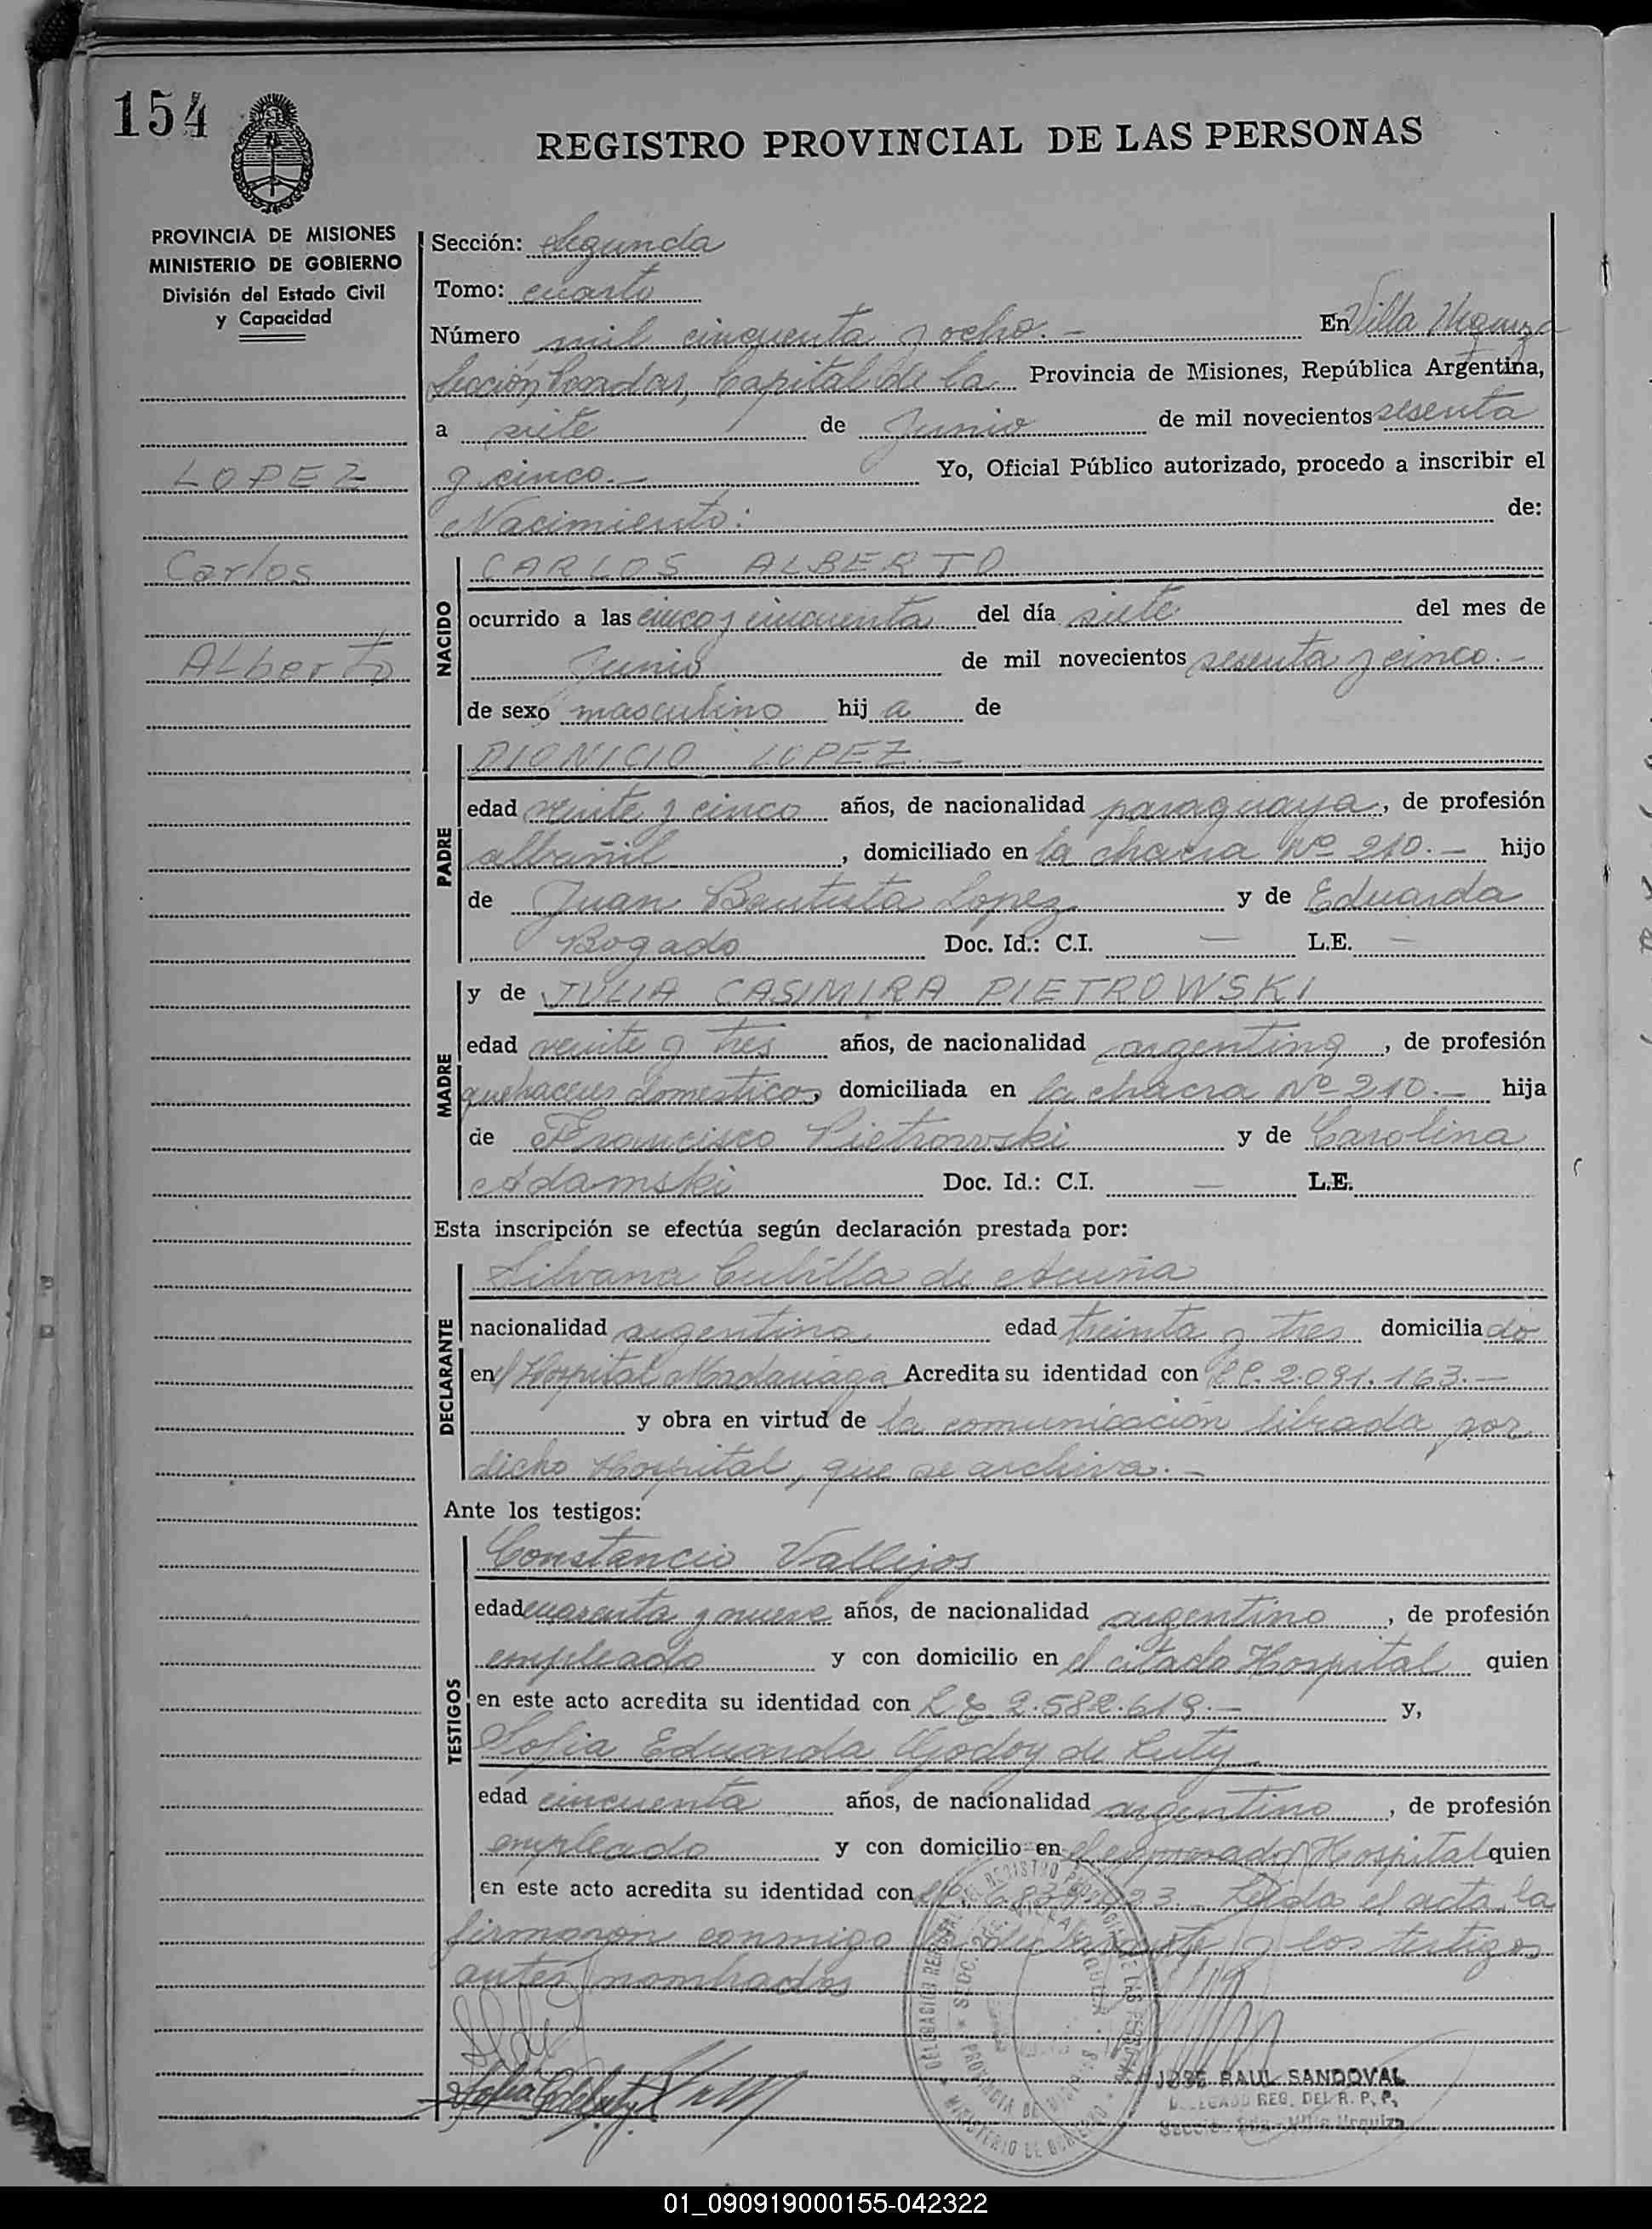 154
REGISTRO PROVINCIAL DE LAS PERSONAS
PROVINCIA DE MISIONES
MINISTERIO DE GOBIERNO
División del Estado Civil
y Capacidad
LOPEZ
Carlos
ALberto
Sección: Segunda
Tomo: cuarto
Número mil cincuenta y ocho.- En Villa Urquiza
Sección Posadas, Capital de la Provincia de Misiones, República Argentina,
a siete de Junio de mil novecientos sesenta
y cinco.- Yo, Oficial Público autorizado, procedo a inscribir el
Nacimiento: de:
NACIDO
CARLOS ALBERTO
ocurrido a las cinco y cincuenta del día siete del mes de
Junio de mil novecientos sesenta y cinco.-
de sexo masculino hij a de
PADRE
DIONICIO LOPEZ.-
edad veinte y cinco años, de nacionalidad paraguaya, de profesión
albañil, domiciliado en la chacra Nº 210.- hijo
de Juan Bautista Lopez y de Eduarda
Bogado Doc. Id.: C.I. — L.E. —
MADRE
y de JULIA CASIMIRA PIETROWSKI
edad veinte y tres años, de nacionalidad argentina, de profesión
quehaceres domesticos, domiciliada en la chacra Nº 210.- hija
de Francisco Pietrowski y de Carolina
Adamski Doc. Id.: C.I. — L.E.
Esta inscripción se efectúa según declaración prestada por:
DECLARANTE
Silvana Cubilla de Acuña
nacionalidad argentina edad treinta y tres domiciliado
en el Hospital Madariaga Acredita su identidad con 2.091.163.-
y obra en virtud de la comunicación librada por
dicho Hospital, que se archiva.-
Ante los testigos:
TESTIGOS
Constancio Vallejos
edad cuarenta y nueve años, de nacionalidad argentino, de profesión
empleado y con domicilio en el citado Hospital quien
en este acto acredita su identidad con L E. 2.582.619.- y,
Sofia Eduarda Godoy de Luty
edad cincuenta años, de nacionalidad argentino, de profesión
empleado y con domicilio en el expresado Hospital quien
en este acto acredita su identidad con Leida el acta, la
firmaron conmigo la declarante y los testigos
antes nombrados
JOSE RAUL SANDOVAL
DELEGADO REG. DEL R. P. P.
Sección 2da - Villa Urquiza
01_090919000155-042322